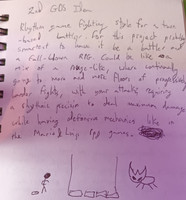 2nd GDS Idea
Rhythm game fighting style for a turn
based battler. For this project probably
smartest to have it be a battler not
a full-blown RPG. Could be like a
mix of a rogue-like, where continually
going to more and more floors of progressively
harder fights, with your attacks requiring
a rhythmic precision to deal maximum damage
while having defensive mechanics like
the Mario & Luigi rpg games.